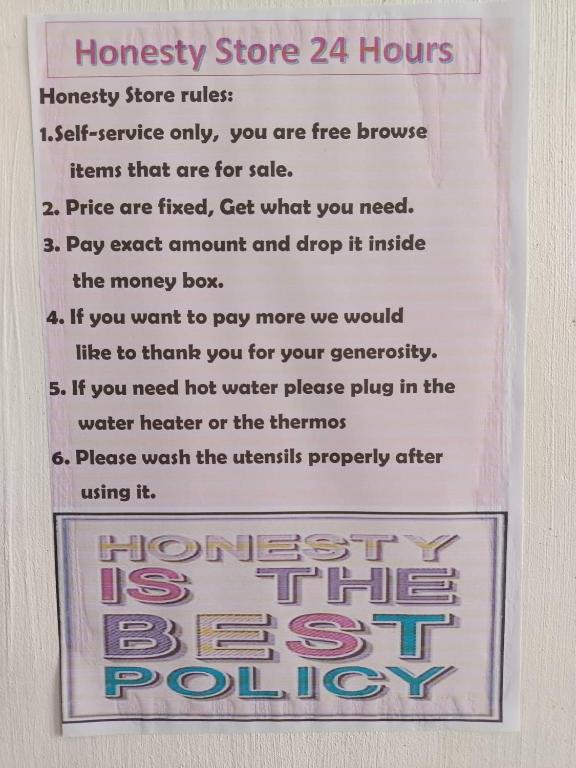 Honesty Store 24 Hours
Honesty Store rules:
1.Self-service only, you are free browse
items that are for sale.
2. Price are fixed, Get what you need.
3. Pay exact amount and drop it inside
the money box.
4. If you want to pay more we would
like to thank you for your generosity.
5. If you need hot water please plug in the
water heater or the thermos
6. Please wash the utensils properly after
using it.
HONESTY
IS THE
BEST
POLICY